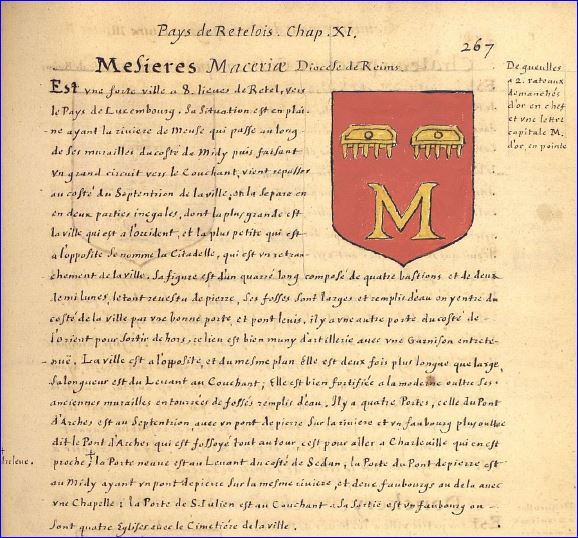 Pays de Retelois. Chap. XI.
267
Mesieres Maceriæ Diocese de Reims.
De gueulles
a 2. rateaux
demanchés
d'or en chef
et vne lettre
capitale M.
d'or, en pointe
Est vne forte ville a 8. lieues de Retel, vers
le Pays de Luxembourg. Sa Situation est en plai-
ne ayant la riviere de Meuse qui passe au long
de ses murailles du costé du Midy puis faisant
vn grand circuit vers le Couchant, vient repasser
au costé du Septentrion de la ville, et la separe en
en deux parties inegales, dont la plus grande est
la ville qui est a l'occident, et la plus petite qui est
a l'opposite se nomme la Citadelle, qui est vn retran-
chement de la ville. Sa figure est d'un quarré long composé de quatre bastions et de deux
demi lunes, le tout revestu de pierre, Ses fosses sont larges et remplis d'eau on y entre du
costé de la ville par vne bonne porte, et pont levis. il y a vne autre porte du costé de
l'orient pour sortir dehors, ce lieu est bien muny d'artillerie avec vne Garnison entrete-
nuë. La ville est a l'opposite, et du mesme plan. Elle est deux fois plus longue que large,
sa longueur est du Levant au Couchant; Elle est bien fortifiée a la moderne oultre ses
anciennes murailles entourrées de fossés remplis d'eau. Il y a quatre Portes, celle du Pont
d'Arches est au Septentrion, avec vn pont de pierre sur la riviere et vn faubourg plus oultre
dit le Pont d'Arches qui est fossoyé tout autour, c'est pour aller a Charleville qui en est
proche; la Porte neuve est au Levant du costé de Sedan; la Porte du Pont de pierre est
au Midy ayant vn pont de pierre sur la mesme riviere, et deux faubourgs au dela avec
vne Chapelle; la Porte de S. Iulien est au Couchant a sa Sortie est vn faubourg ou
sont quatre Eglises avec le Cimetiére de la ville.